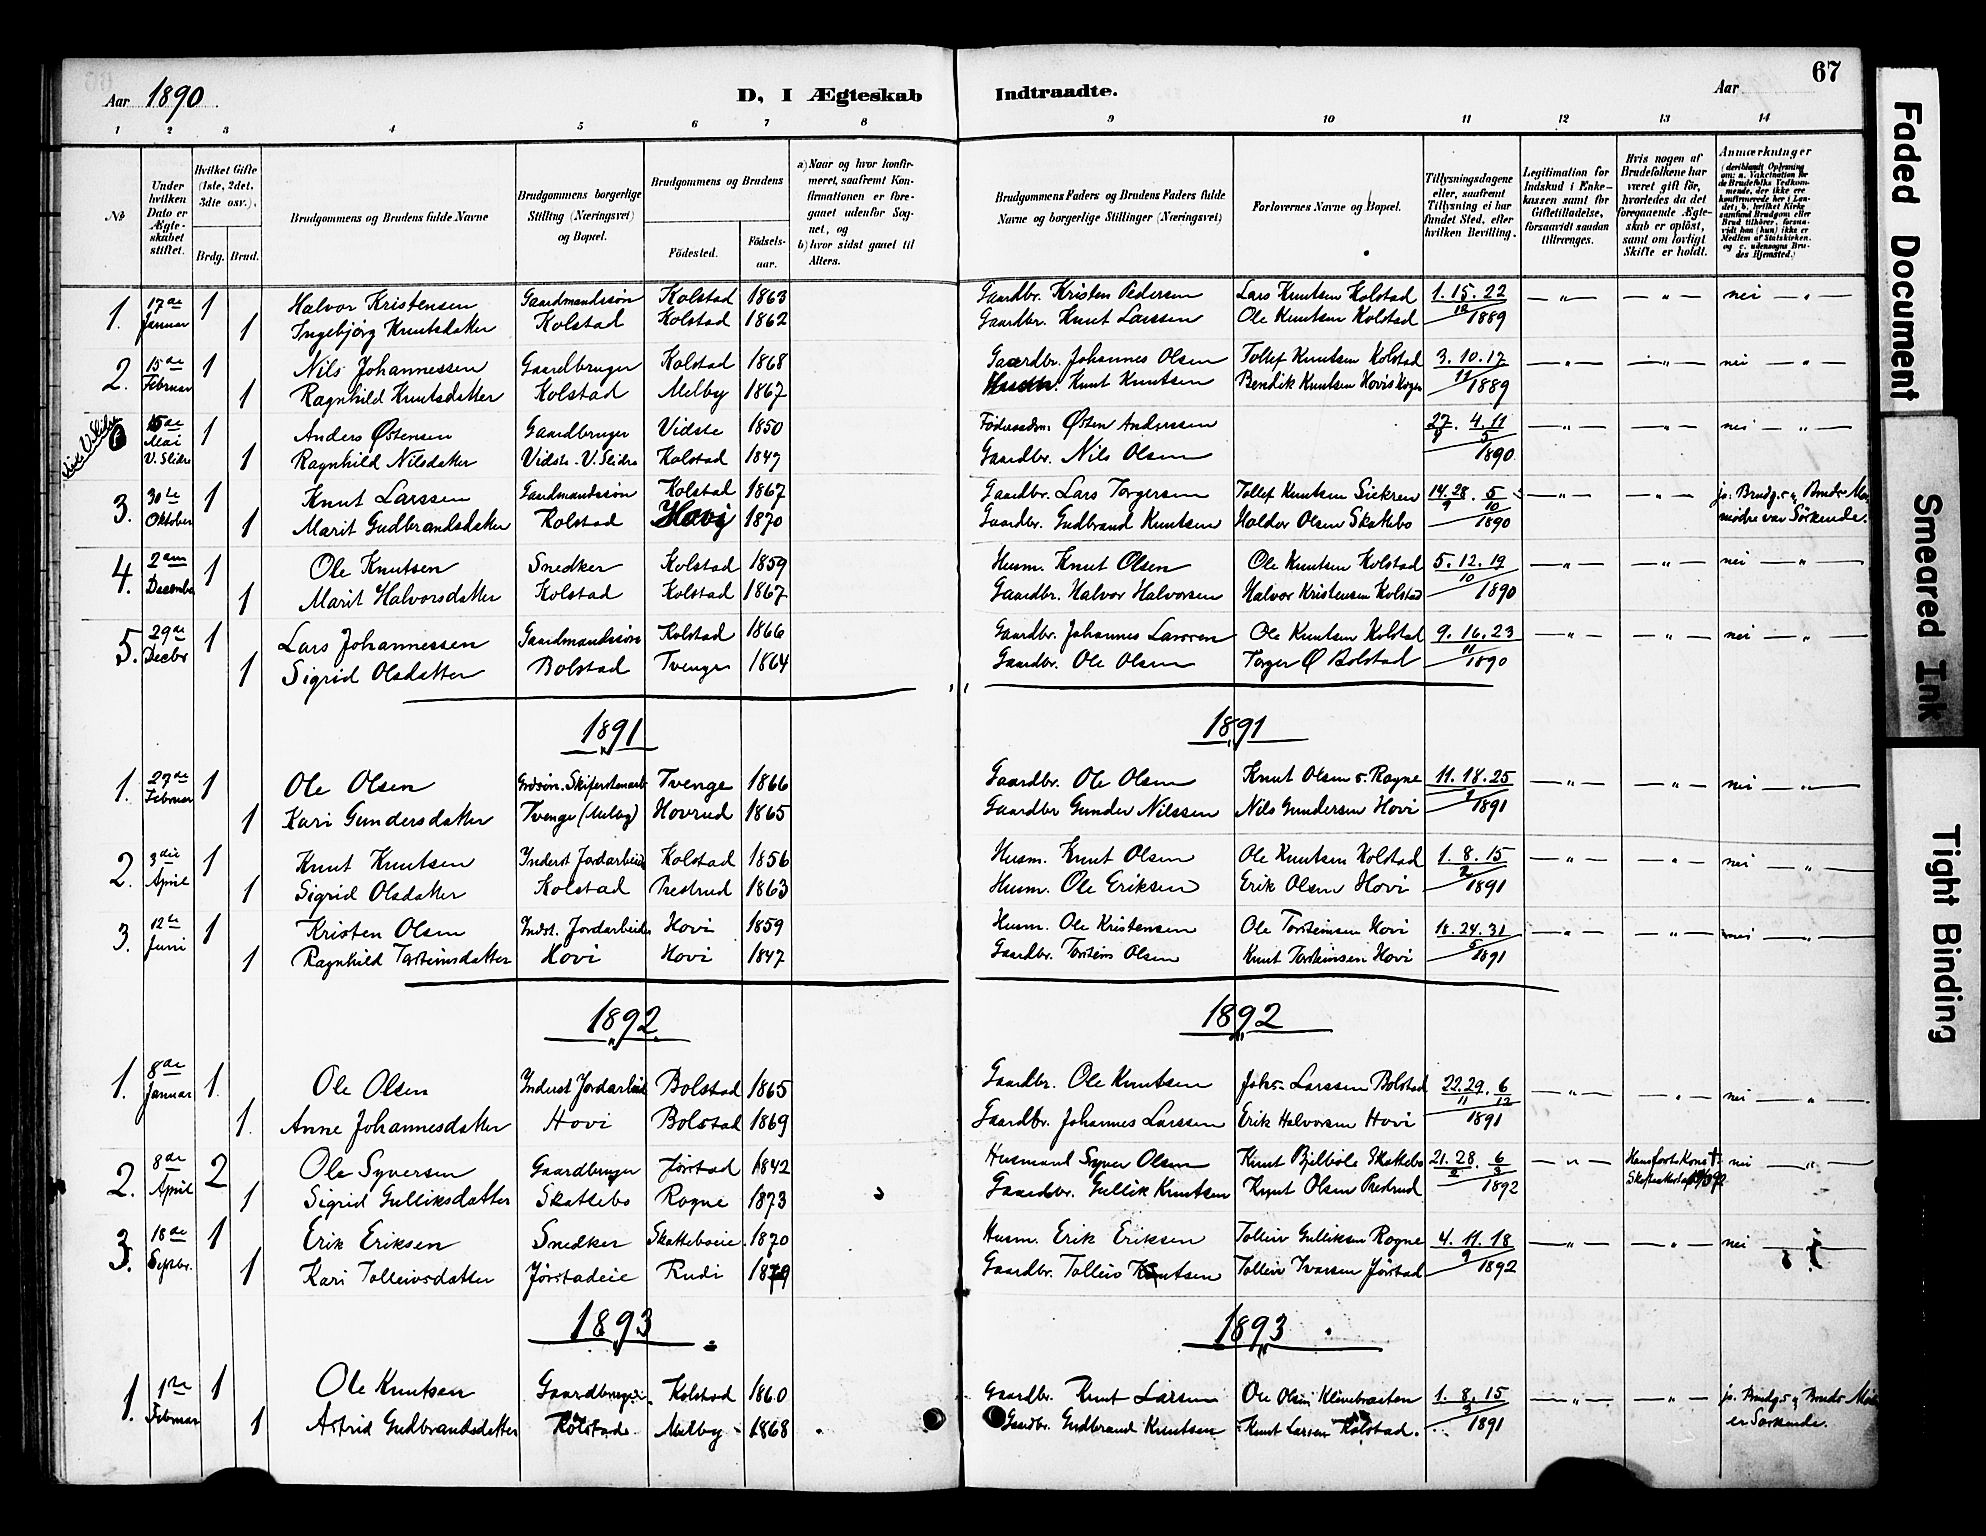 Aar 1890
D, I Ægteskab Indtraadte.
Aar
67
1 2 3 4 5 6 7 8 9 10 11 12 13 14
No
Under hvilken Dato er Ægteskabet stiftet.
Hvilket Gifte (1ste, 2det, 3die osv.).
Brdg. Brud.
Brudgommens og Brudens fulde Navne
Brudgommens borgerlige Stilling (Næringsvei) og Bopæl.
Brudgommens og Brudens
Fødested.
Fødselsaar.
a) Naar og hvor konfirmeret, saafremt Konfirmationen er foregaaet udenfor Sognet, og
b) hvor sidst gaaet til Alters.
Brudgommens Faders og Brudens Faders fulde Navne og borgerlige Stillinger (Næringsvei)
Forlovernes Navne og Bopæl.
Tillysningsdagene eller, saafremt Tillysning ei har fundet Sted, efter hvilken Bevilling.
Legitimation for Indskud i Enkekassen samt for Giftetilladelse, forsaavidt saadan tiltrænges.
Hvis nogen af Brudefolkene har været gift før, hvorledes da det foregaaende Ægteskab er opløst, samt om lovligt Skifte er holdt.
Anmærkninger (deriblandt Oplysning om: a. Vakcination for de Brudefolks Vedkommende, der ikke ere konfirmerede her i Landet; b. hvilket Kirkesamfund Brudgom eller Brud tilhører, forsaavidt han (hun) ikke er Medlem af Statskirken, og c. udensogns Brudes Hjemsted.)
1. 17de Januar 1 Halvor Kristensen Gaardmandssøn Kolstad 1863 Gaardbr. Kristen Pedersen Lars Knutsen Kolstad 1. 15. 22 nei
1 Ingebjörg Knutsdatter Kolstad Kolstad 1862 Gaardbr. Knut Larssen Ole Knutsen Kolstad 12 1889
2. 15de Februar 1 Nils Johannessen Gaardbruger Kolstad 1868 Gaardbr. Johannes Olsen Tollef Knutsen Kolstad 3. 10. 17 nei
1 Ragnhild Knutsdatter Kolstad Melby 1867 Knut Knutsen Bendik Knutsen Hoviskogen 11 1889
15de Mai V. Slidre 1 Anders Østensen Gaardbruger Vidste 1850 Føderaadm. Østen Andersen 27. 4. 11 nei
1 Ragnhild Nilsdatter Vidste. V. Slidre Kolstad 1847 Gaardbr. Nils Olsen 5 1890
3. 30te Oktober 1 Knut Larssen Gaardmandssøn Kolstad 1867 Gaardbr. Lars Torgersen Tollef Knutsen 14. 28. 5 jo. Brudg.s og Bruds
1 Marit Gudbrandsdatter Kolstad Hovi 1870 Gaardbr. Gudbrand Knutsen Haldor Olsen Skattebo 9 10 1890 mødre var Søskende.
4. 2den December 1 Ole Knutsen Snedker Kolstad 1859 Husm. Knut Olsen Ole Knutsen Kolstad 5. 12. 19 nei
1 Marit Halvorsdatter Kolstad Kolstad 1867 Gaardbr. Halvor Halvorsen Halvor Kristensen Kolstad 10 1890
5. 29de Decbr 1 Lars Johannessen Gaardmandssøn Kolstad 1866 Gaardbr. Johannes Larssen Ole Knutsen Kolstad 9. 16. 23 nei
1 Sigrid Olsdatter Bolstad Tvenge 1864 Gaardbr. Ole Olsen Torger Ø Bolstad 11 1890
1891 1891
1. 27de Februar 1 Ole Olsen Tvenge 1866 Gaardbr. Ole Olsen Knut Olsen Rogne 11. 18. 25 nei
1 Kari Gundersdatter Tvenge (Melby) Hovrud 1865 Gaardbr Gunder Nilssen Nils Gundersen Hovi 1891
2. 3die April 1 Knut Knutsen Inderst Jordarbeider Kolstad 1856 Husm. Knut Olsen Ole Knutsen Kolstad 1. 8. 15 nei
1 Sigrid Olsdatter Kolstad Prestrud 1863 Husm. Ole Eriksen Erik Olsen Hovi 2 1891
3. 12te Juni 1 Kristen Olsen Indst. Jordarbeider Hovi 1859 Husm. Ole Kristensen Ole Torsteinsen Hovi 18. 24. 31 nei
1 Ragnhild Torsteinsdatter Hovi Hovi 1847 Gaardbr. Torstein Olsen Knut Torsteinsen Hovi 5 1891
1892 1892
1. 8de Januar 1. Ole Olsen Inderst Jordarbeid Bolstad 1865 Gaardbr. Ole Knutsen Johs Larssen Bolstad 22. 29. 6 nei
1. Anne Johannesdatter Hovi Bolstad 1869 Gaardbr. Johannes Larssen Erik Halvorsen Hovi 11 12 1891
2. 8de April 2 Ole Syversen Gaardbruger Jørstad 1842 Husmand Syver Olsen Knut Skattebo 21. 28. 6 Hans forr. Kone † nei
1 Sigrid Gulliksdatter Skattebo Rogne 1873 Gaardbr. Gullik Knutsen Knut Olsen Prestrud 2 3 1892
3. 18de Septbr. 1 Erik Eriksen Snedker Skatteboeie 1870 Husm. Erik Eriksen Tolleiv Gulliksen Rogne 4. 11. 18 nei
1 Kari Tolleivsdatter Jørstadeie Rudi 1879 Gaardbr. Tolleiv Knutsen Tolleiv Ivarsen Jørstad 9 1892
1893 1893
1. 1ste Februar 1 Ole Knutsen Gaardbruger Kolstad 1860 Gaardbr. Knut Larsen Ole Olsen 1. 8. 15 jo. Brudg.s og Bruds
1 Astrid Gudbrandsdatter Kolstad. Melby 1868 Gaardbr. Gudbrand Knutsen Knut Larsen Kolstad. 1891 er Søskende.
Faded Document
Smeared Ink
Tight Binding